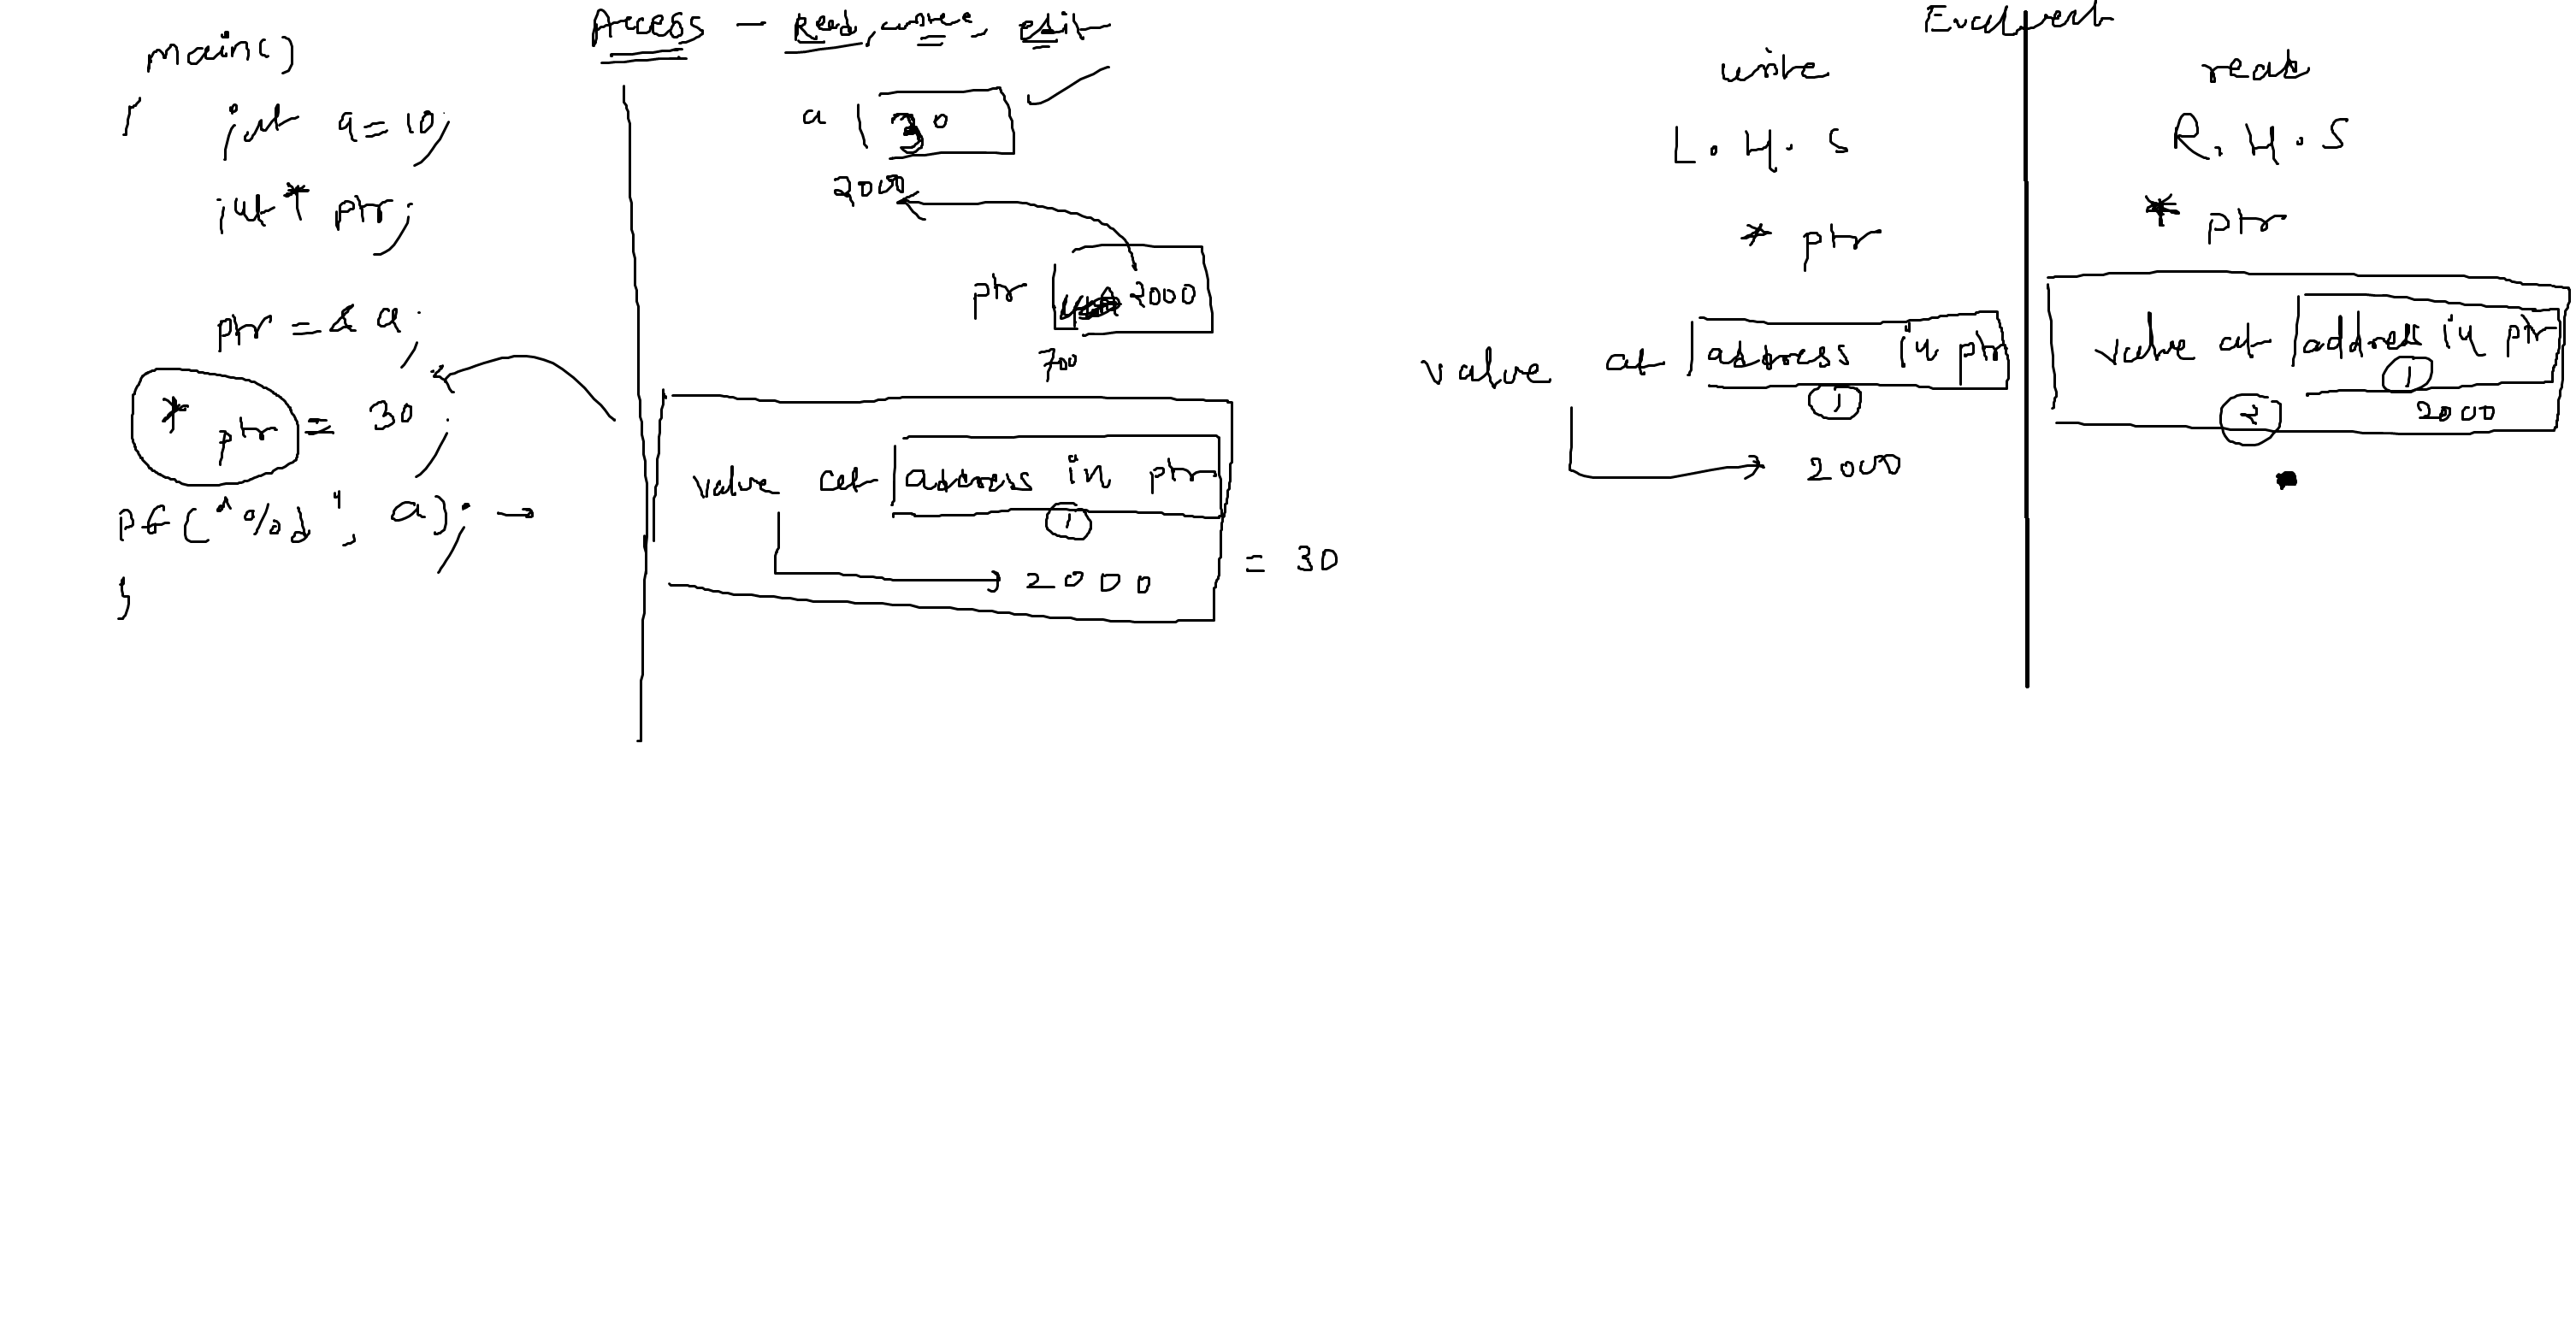 main()
{ int a = 10;
int * ptr;
ptr = & a;
* ptr = 30;
pf("%d", a); →
}
Access - Read, write, edit
a 30
2000
ptr 2000
700
value at address in ptr
1
2000
= 30
write
L.H.S
* ptr
value at address in ptr
1
2000
read
R.H.S
* ptr
value at address in ptr
1
2 2000